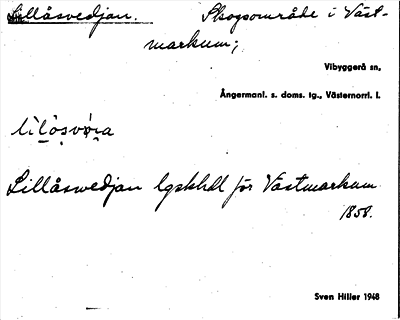 Lillåsvedjan. Skogsområde i Väst-
markum;
Vibyggerå sn,
Ångermanl. s. doms. tg., Västernorrl. l.
Lillåswedjan lgskhdl för Västmarkum
1858.
Sven Hiller 1948